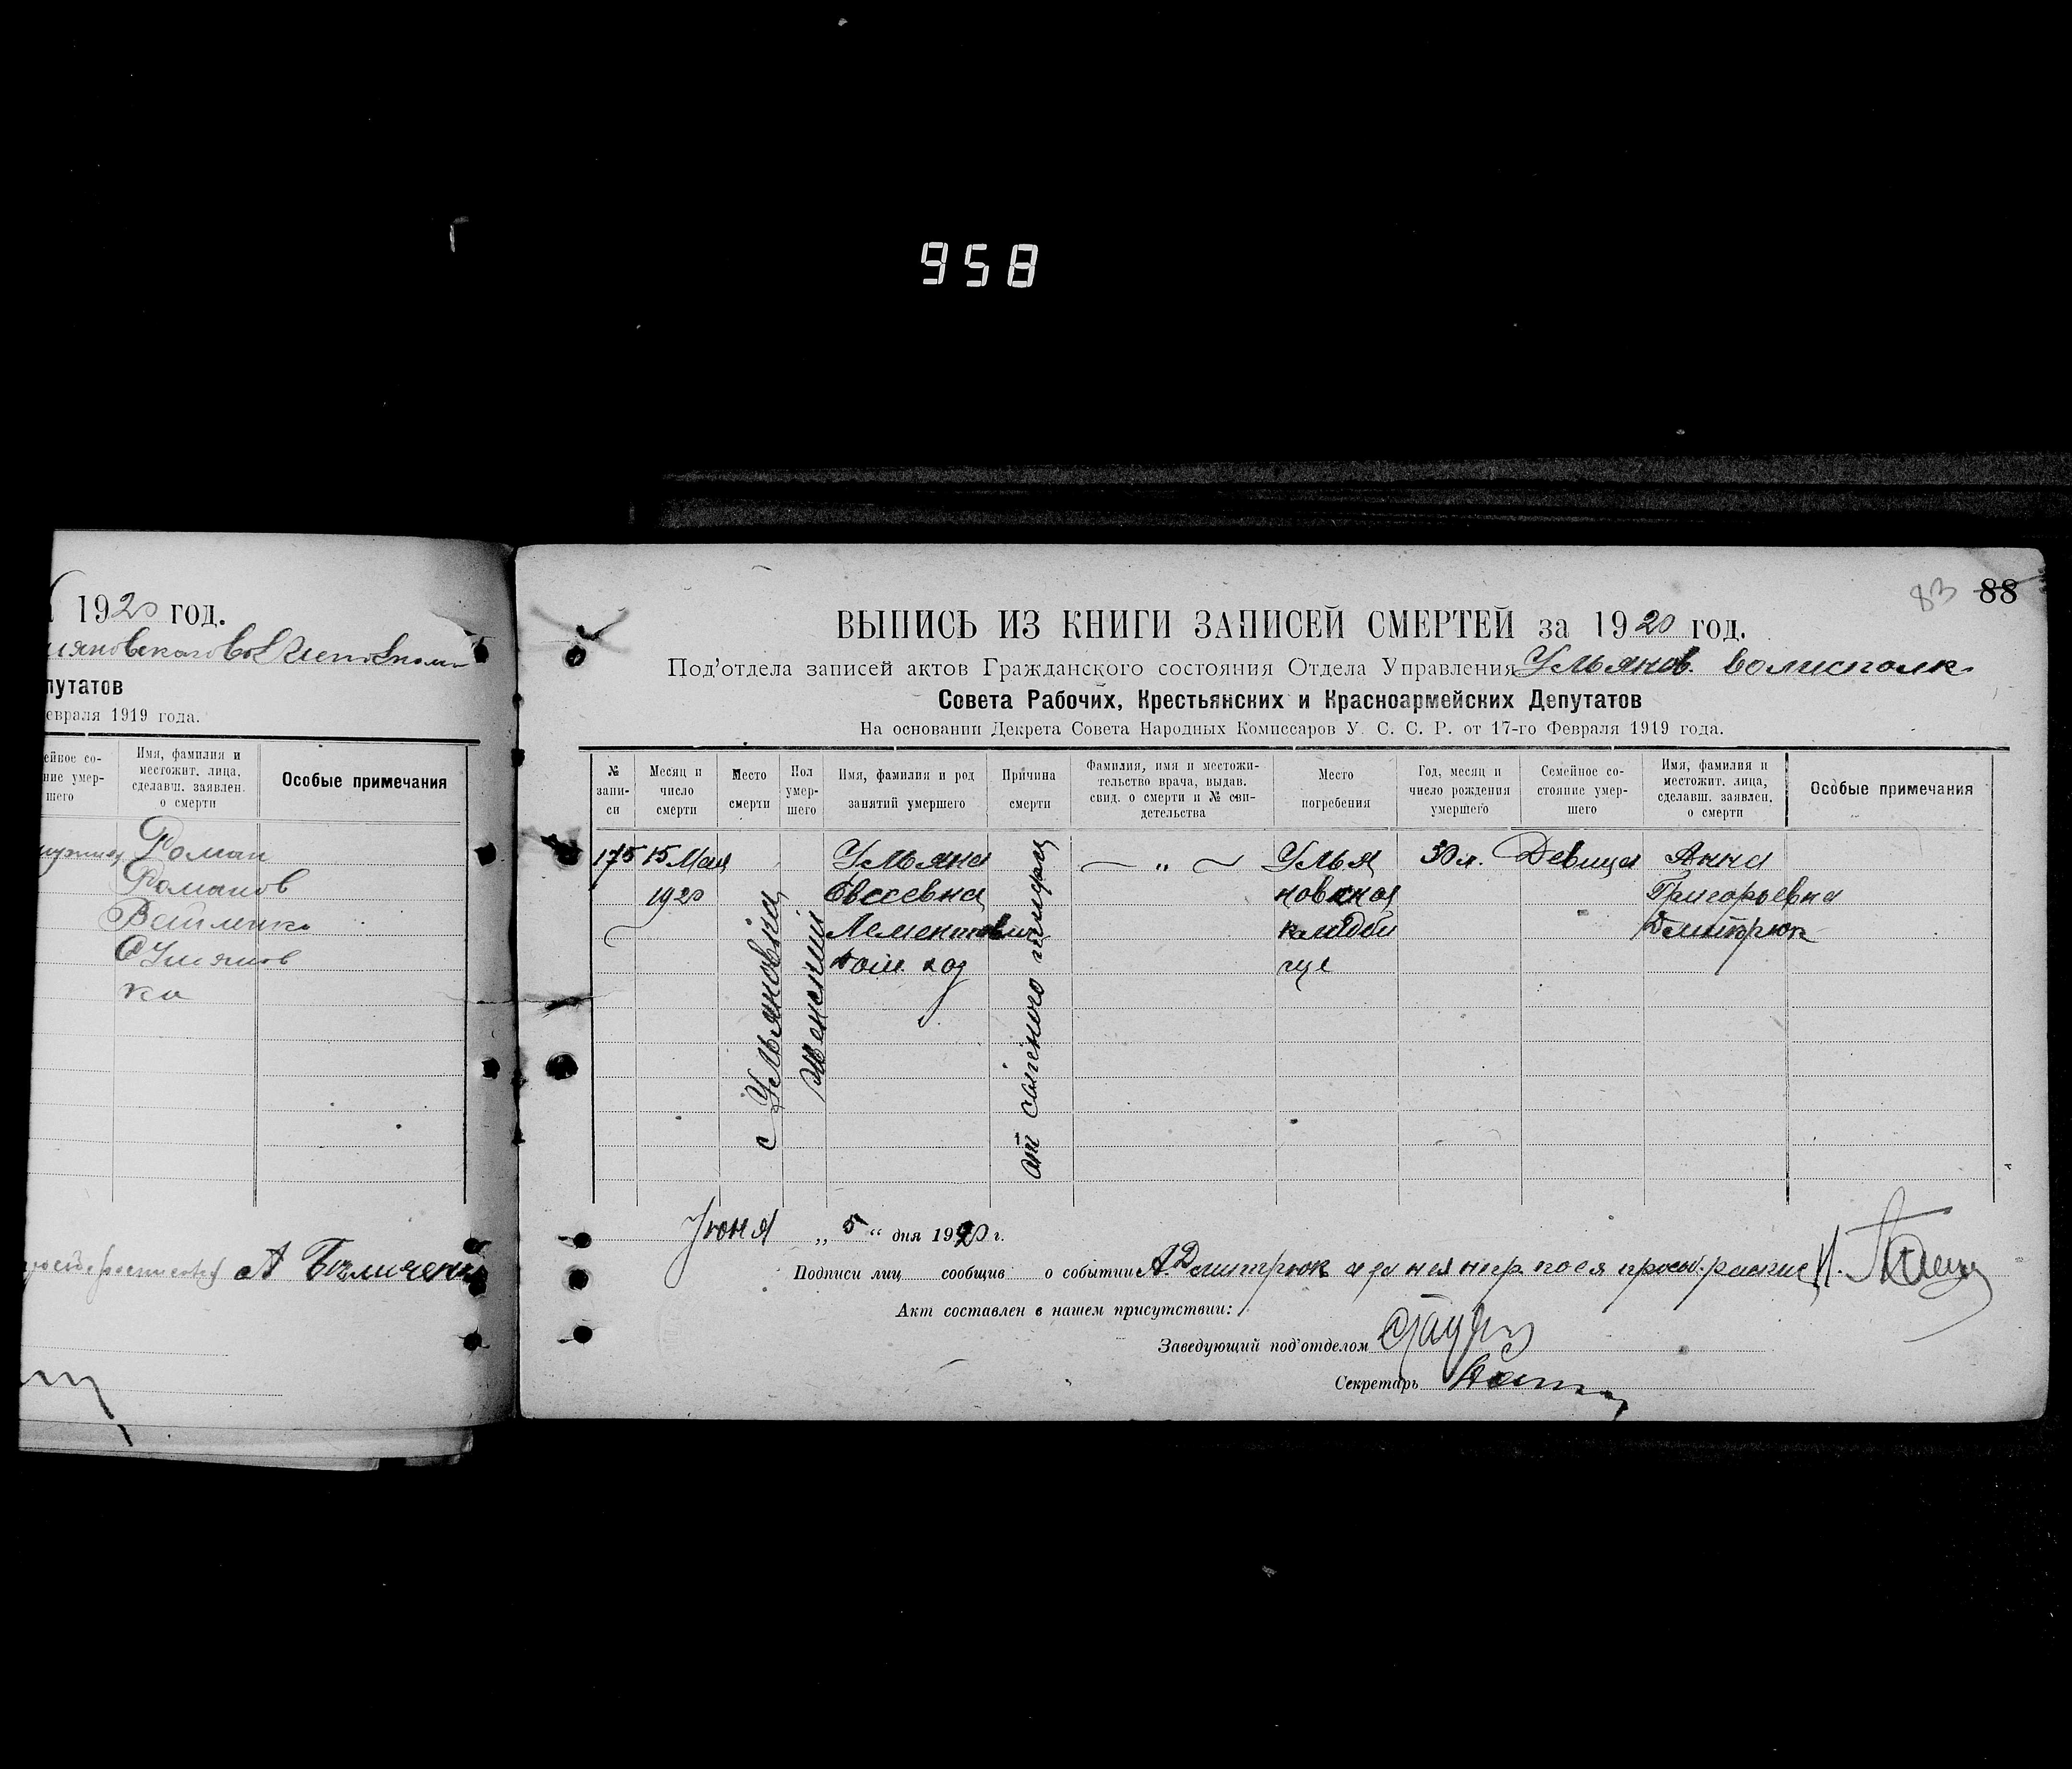 958
1920 год.
путатов
евраля 1919 года.
ейное со-
ние умер-
шего
Имя, фамилия и
местожит. лица,
сделавш. заявлен.
о смерти
Особые примечания
Роман
Романов
ка
А
83 88
ВЫПИСЬ ИЗ КНИГИ ЗАПИСЕЙ СМЕРТЕЙ за 1920 год.
Под'отдела записей актов Гражданского состояния Отдела Управления Ульянов. волисполк
Совета Рабочих, Крестьянских и Красноармейских Депутатов
На основании Декрета Совета Народных Комиссаров У. С. С. Р. от 17-го Февраля 1919 года.
№
запи-
си
Месяц и
число
смерти
Место
смерти
Пол
умер-
шего
Имя, фамилия и род
занятий умершего
Причина
смерти
Фамилия, имя и местожи-
тельство врача, выдав.
свид. о смерти и № сви-
детельства
Место
погребения
Год, месяц и
число рождения
умершего
Семейное со-
стояние умер-
шего
Имя, фамилия и
местожит. лица,
сделавш. заявлен.
о смерти
Особые примечания
175
15 Мая
1920
с Ульяновка
Женский
Ульяна
Евсеевна
Лементович
дом. хоз
от сыпного тифа
— „ —
Улья
новская
кладби
ще
30 л.
Девица
Анна
Григорьевна
Дмитрюк
Июня „ 5 “ дня 1920 г.
Подписи лиц сообщив о событии А. Дмитрюк а за нея по ея прозьб.
Акт составлен в нашем присутствии:
Заведующий под'отделом
Секретарь